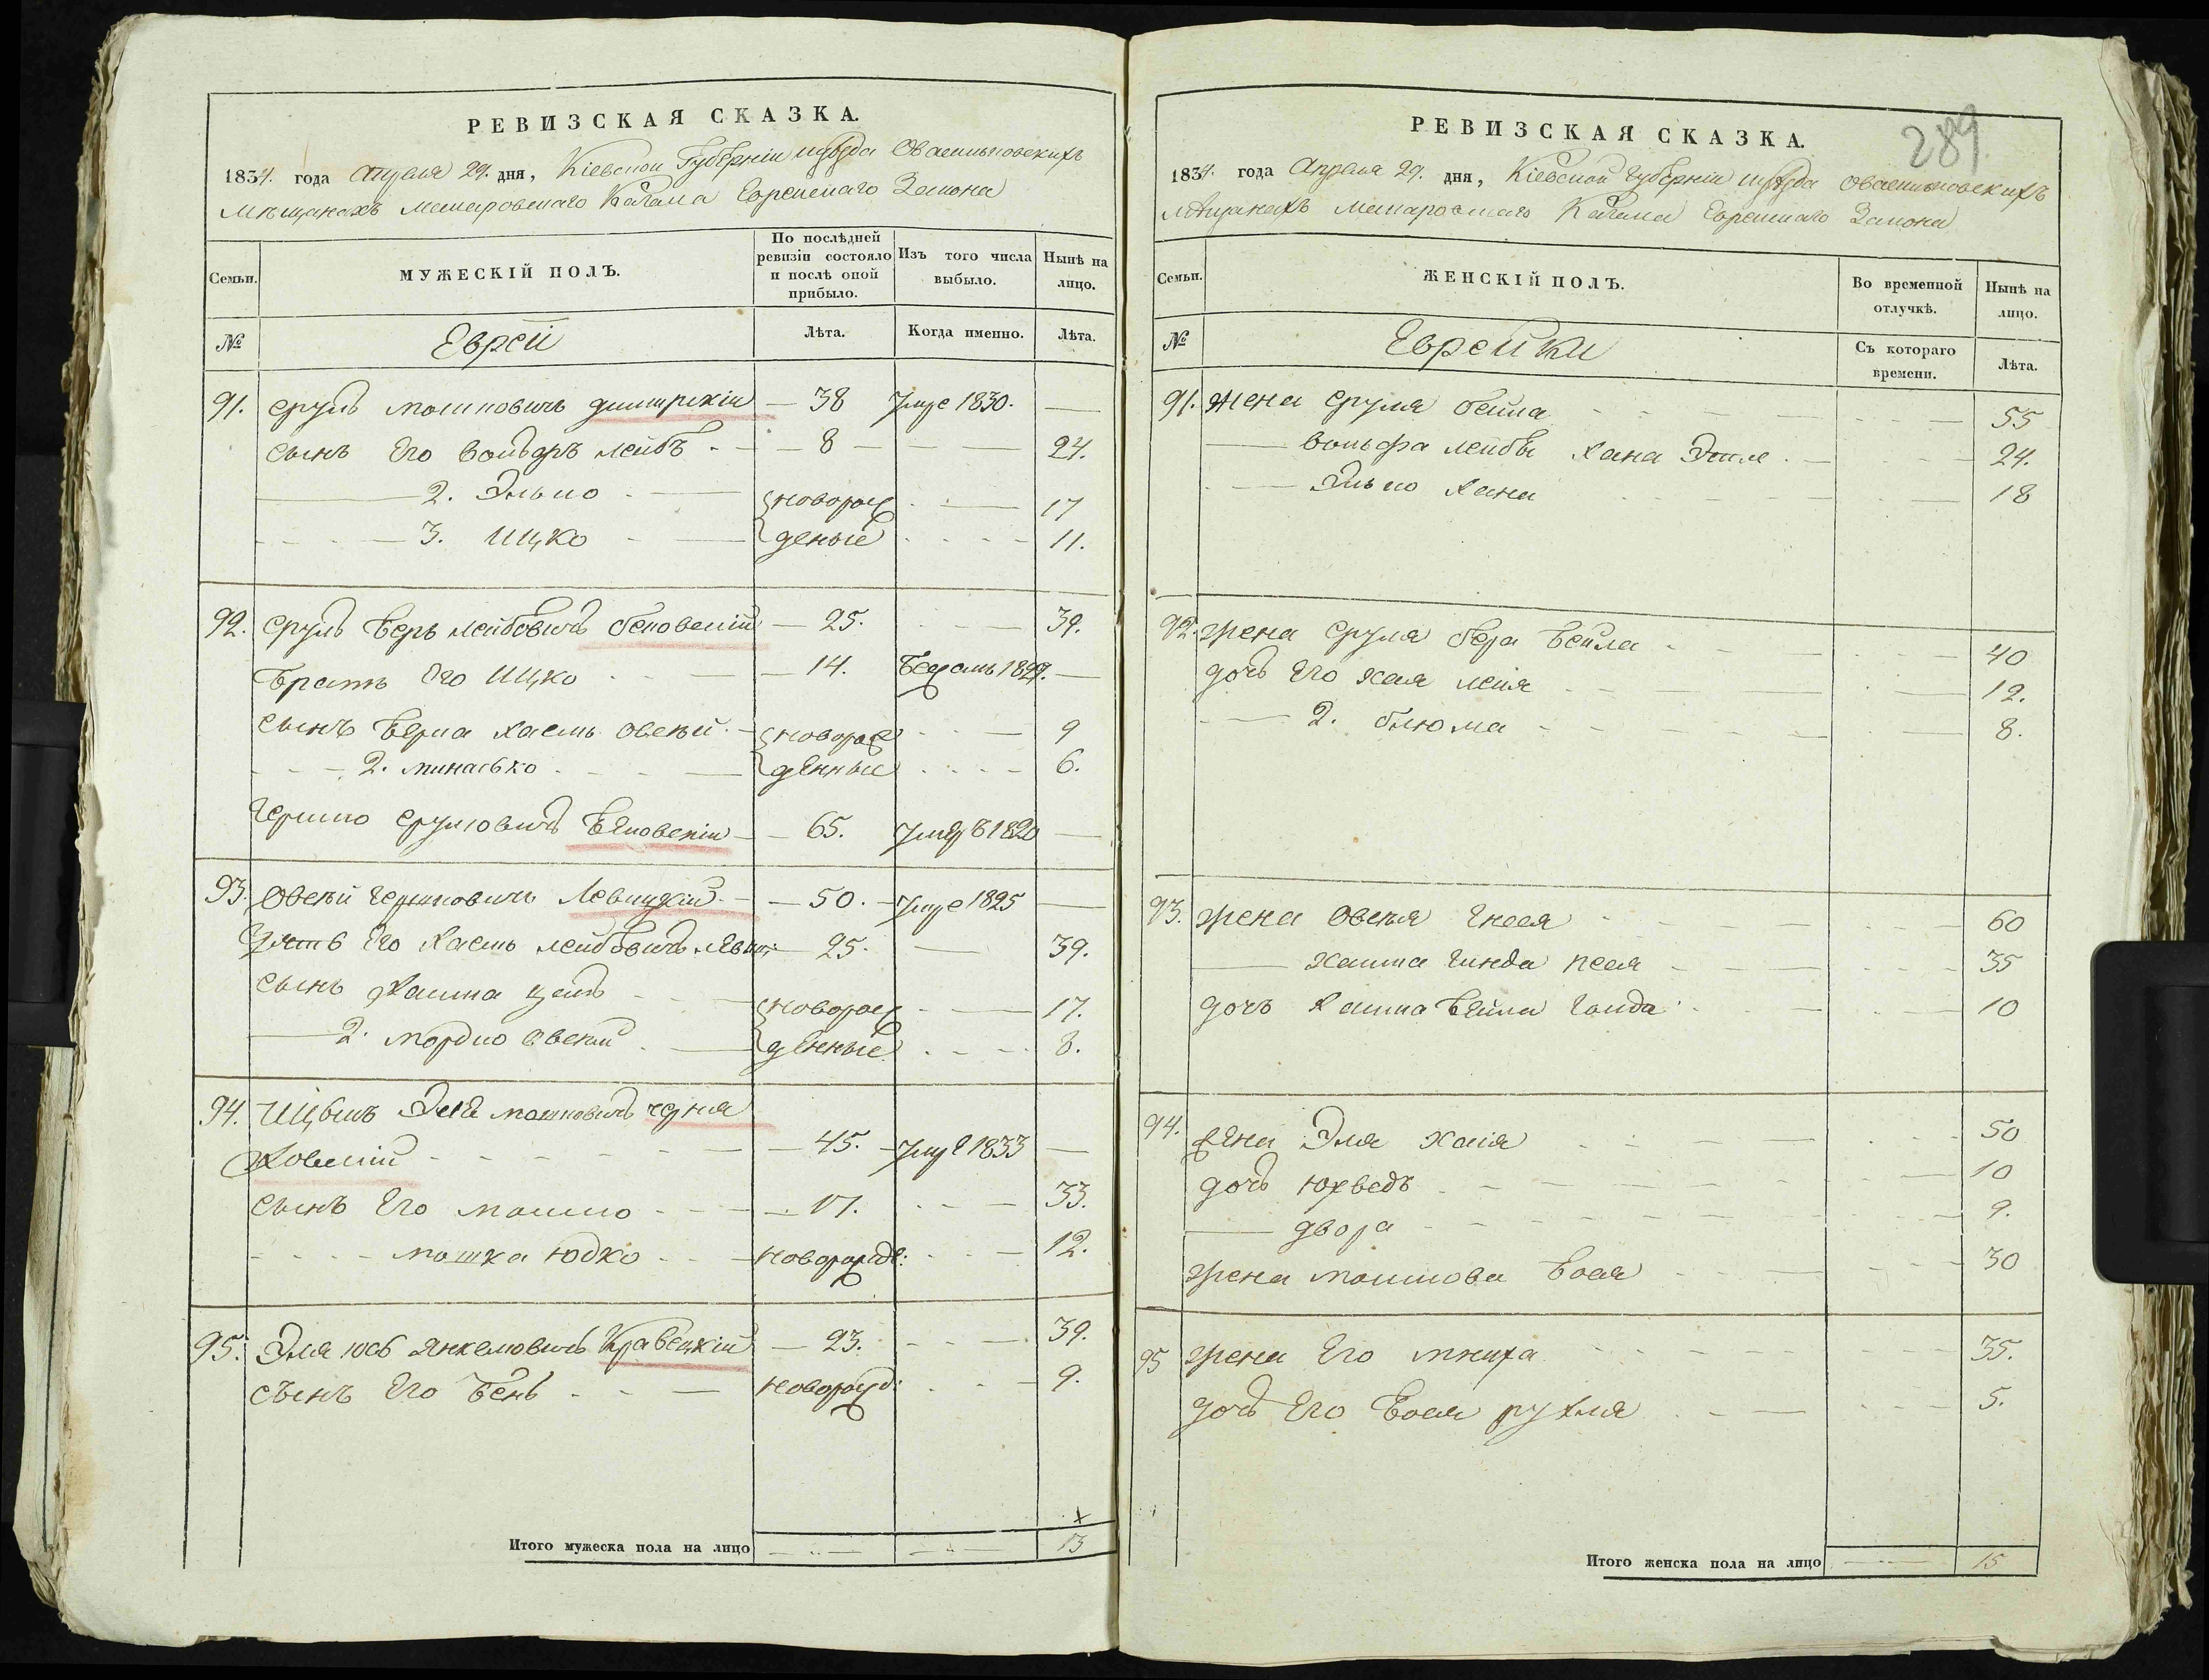 РЕВИЗСКАЯ СКАЗКА.
1834. года Апреля 29. дня, Кіевской Губерніи уезда О Васильковскихъ
Мѣщанахъ Макаровскаго Кагала Еврейскаго Закона
Семьи.
МУЖЕСКІЙ ПОЛЪ.
По послѣдней ревизіи состояло и послѣ оной прибыло.
Изъ того числа выбыло.
Нынѣ на лицо.
№
Еврей
Лѣта.
Когда именно.
Лѣта.
91. Сруль Мошковичъ — 38 Умре 1830. —
сынъ Его Вольфъ лейбъ — 8 — 24.
2. Элько новорож 17
3. Ицко деные 11.
92. Сруль Беръ лейбовичъ — 25. 39.
Братъ Его Ицко — 14. 1827. —
сынъ Берка Хаимъ Овсей новорож 9
2. Минасько денные 6.
Гершко Срулювичъ — 65. Умеръ 1820 —
93. Овсей Гершковичъ Левицкій — 50. Умре 1825 —
Зять Его Хаимъ лейбовичъ левиц: 25. — 39.
сынъ Хаима новорож 17.
2. Мордко Овсей денные 8.
94. Эля Мошковичъ черня
ховскій — 45. Умре 1833 —
сынъ Его Мошко — 17. 33.
Мошка Юдко новорожде: 12.
95. Эля Юсь Янкелювичъ Кравецкій — 23. 39.
сынъ Его Бень новорожд: 9.
Итого мужеска пола на лицо 13
289.
РЕВИЗСКАЯ СКАЗКА.
1834. года Апреля 29. дня, Кіевской Губерніи уезда О Васильковскихъ
Мѣщанахъ Макаровскаго Кагала Еврейскаго Закона
Семьи.
ЖЕНСКІЙ ПОЛЪ.
Во временной отлучкѣ.
Нынѣ на лицо.
№
Еврейки
Съ котораго времени.
Лѣта.
91. Жена Сруля Бейла 55
Вольфа лейбы Хана 24.
Элько Хана 18
92. жена Сруля бера Бейла 40
дочь Его Хая лея 12.
2. блюма 8.
93. жена Овсея Гнеся 60
Хаима Гинда песя 35
дочь Хаима Бейла Голда 10
94. жена Эля Хаія 50
дочь Юхведъ 10
двора 9.
жена Мошкова Бася 30
95 жена Его Мниха 35.
дочь Его Бася рухля 5.
Итого женска пола на лицо 15